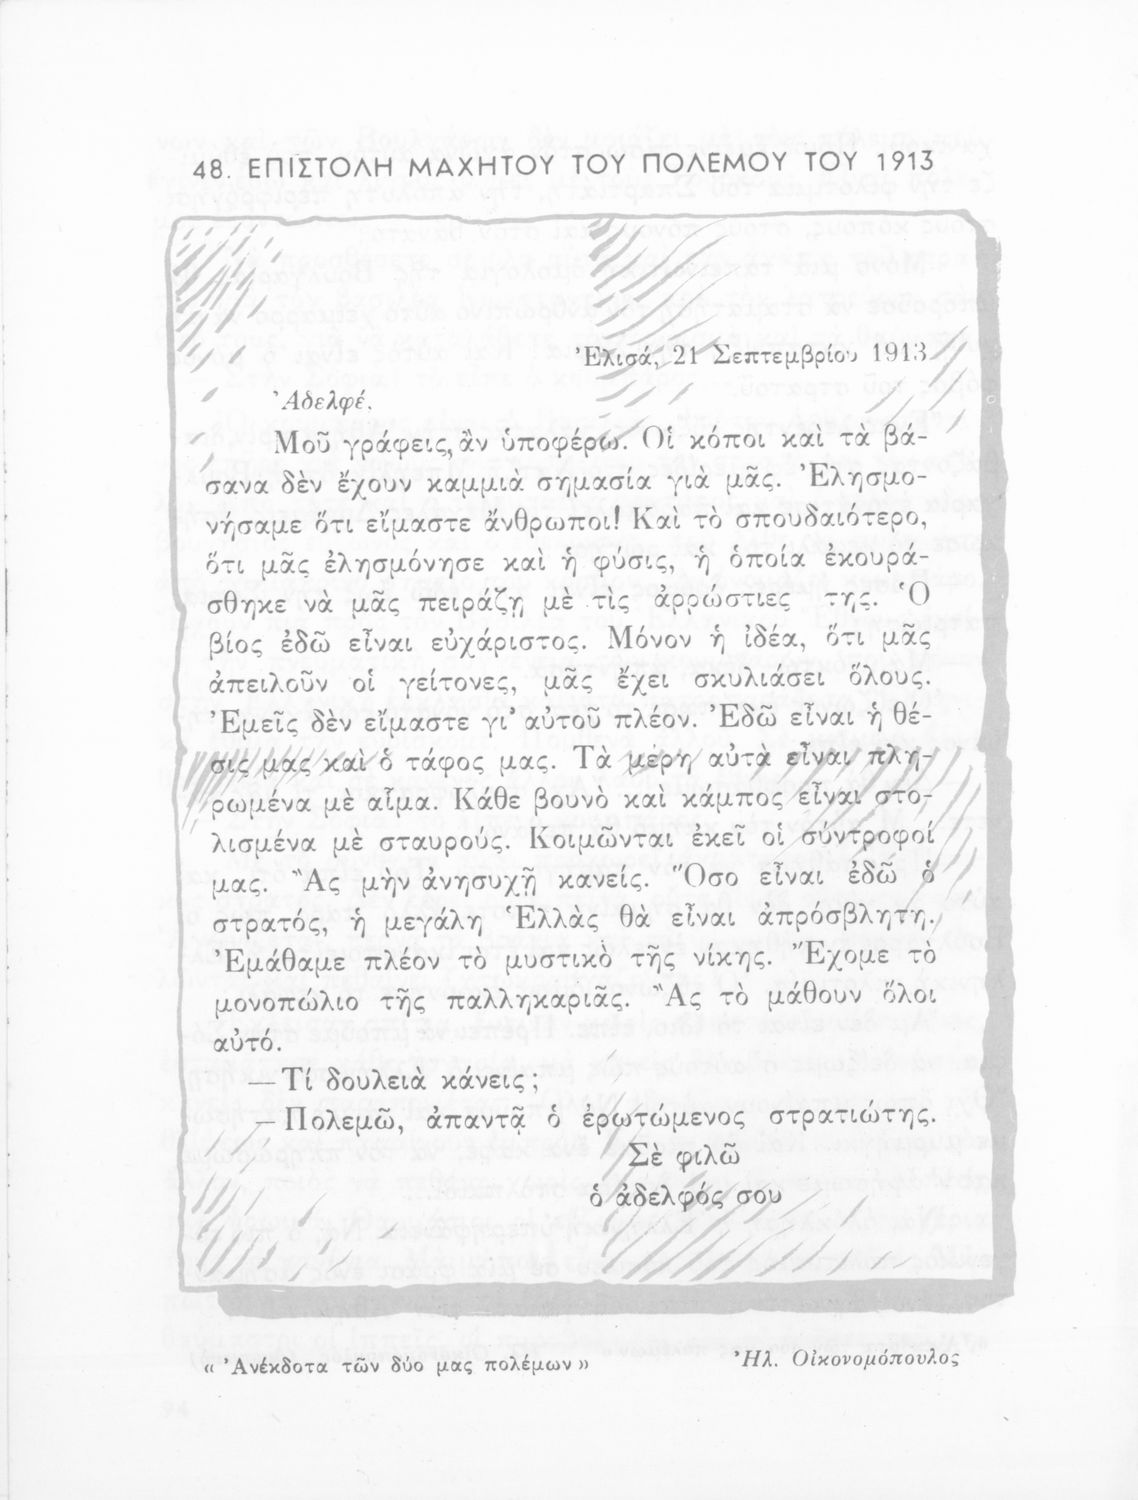 48. ΕΠΙΣΤΟΛΗ ΜΑΧΗΤΟΥ ΤΟΥ ΠΟΛΕΜΟΥ ΤΟΥ 1913
Ἐλισά, 21 Σεπτεμβρίου 1913
Ἀδελφέ,
Μοῦ γράφεις, ἂν ὑποφέρω. Οἱ κόποι καὶ τὰ βά-
σανα δὲν ἔχουν καμμιὰ σημασία γιὰ μᾶς. Ἐλησμο-
νήσαμε ὅτι εἴμαστε ἄνθρωποι! Καὶ τὸ σπουδαιότερο,
ὅτι μᾶς ἐλησμόνησε καὶ ἡ φύσις, ἡ ὁποία ἐκουρά-
σθηκε νὰ μᾶς πειράζῃ μὲ τὶς ἀρρώστιες της. Ὁ
βίος ἐδῶ εἶναι εὐχάριστος. Μόνον ἡ ἰδέα, ὅτι μᾶς
ἀπειλοῦν οἱ γείτονες, μᾶς ἔχει σκυλιάσει ὅλους.
Ἐμεῖς δὲν εἴμαστε γι' αὐτοῦ πλέον. Ἐδῶ εἶναι ἡ θέ-
σις μας καὶ ὁ τάφος μας. Τὰ μέρη αὐτὰ εἶναι πλη-
ρωμένα μὲ αἷμα. Κάθε βουνὸ καὶ κάμπος εἶναι στο-
λισμένα μὲ σταυρούς. Κοιμῶνται ἐκεῖ οἱ σύντροφοί
μας. Ἂς μὴν ἀνησυχῇ κανείς. Ὅσο εἶναι ἐδῶ ὁ
στρατός, ἡ μεγάλη Ἑλλὰς θὰ εἶναι ἀπρόσβλητη.
Ἐμάθαμε πλέον τὸ μυστικὸ τῆς νίκης. Ἔχομε τὸ
μονοπώλιο τῆς παλληκαριᾶς. Ἂς τὸ μάθουν ὅλοι
αὐτό.
— Τί δουλειὰ κάνεις;
— Πολεμῶ, ἀπαντᾷ ὁ ἐρωτώμενος στρατιώτης.
Σὲ φιλῶ
ὁ ἀδελφός σου
« Ἀνέκδοτα τῶν δύο μας πολέμων » Ἠλ. Οἰκονομόπουλος